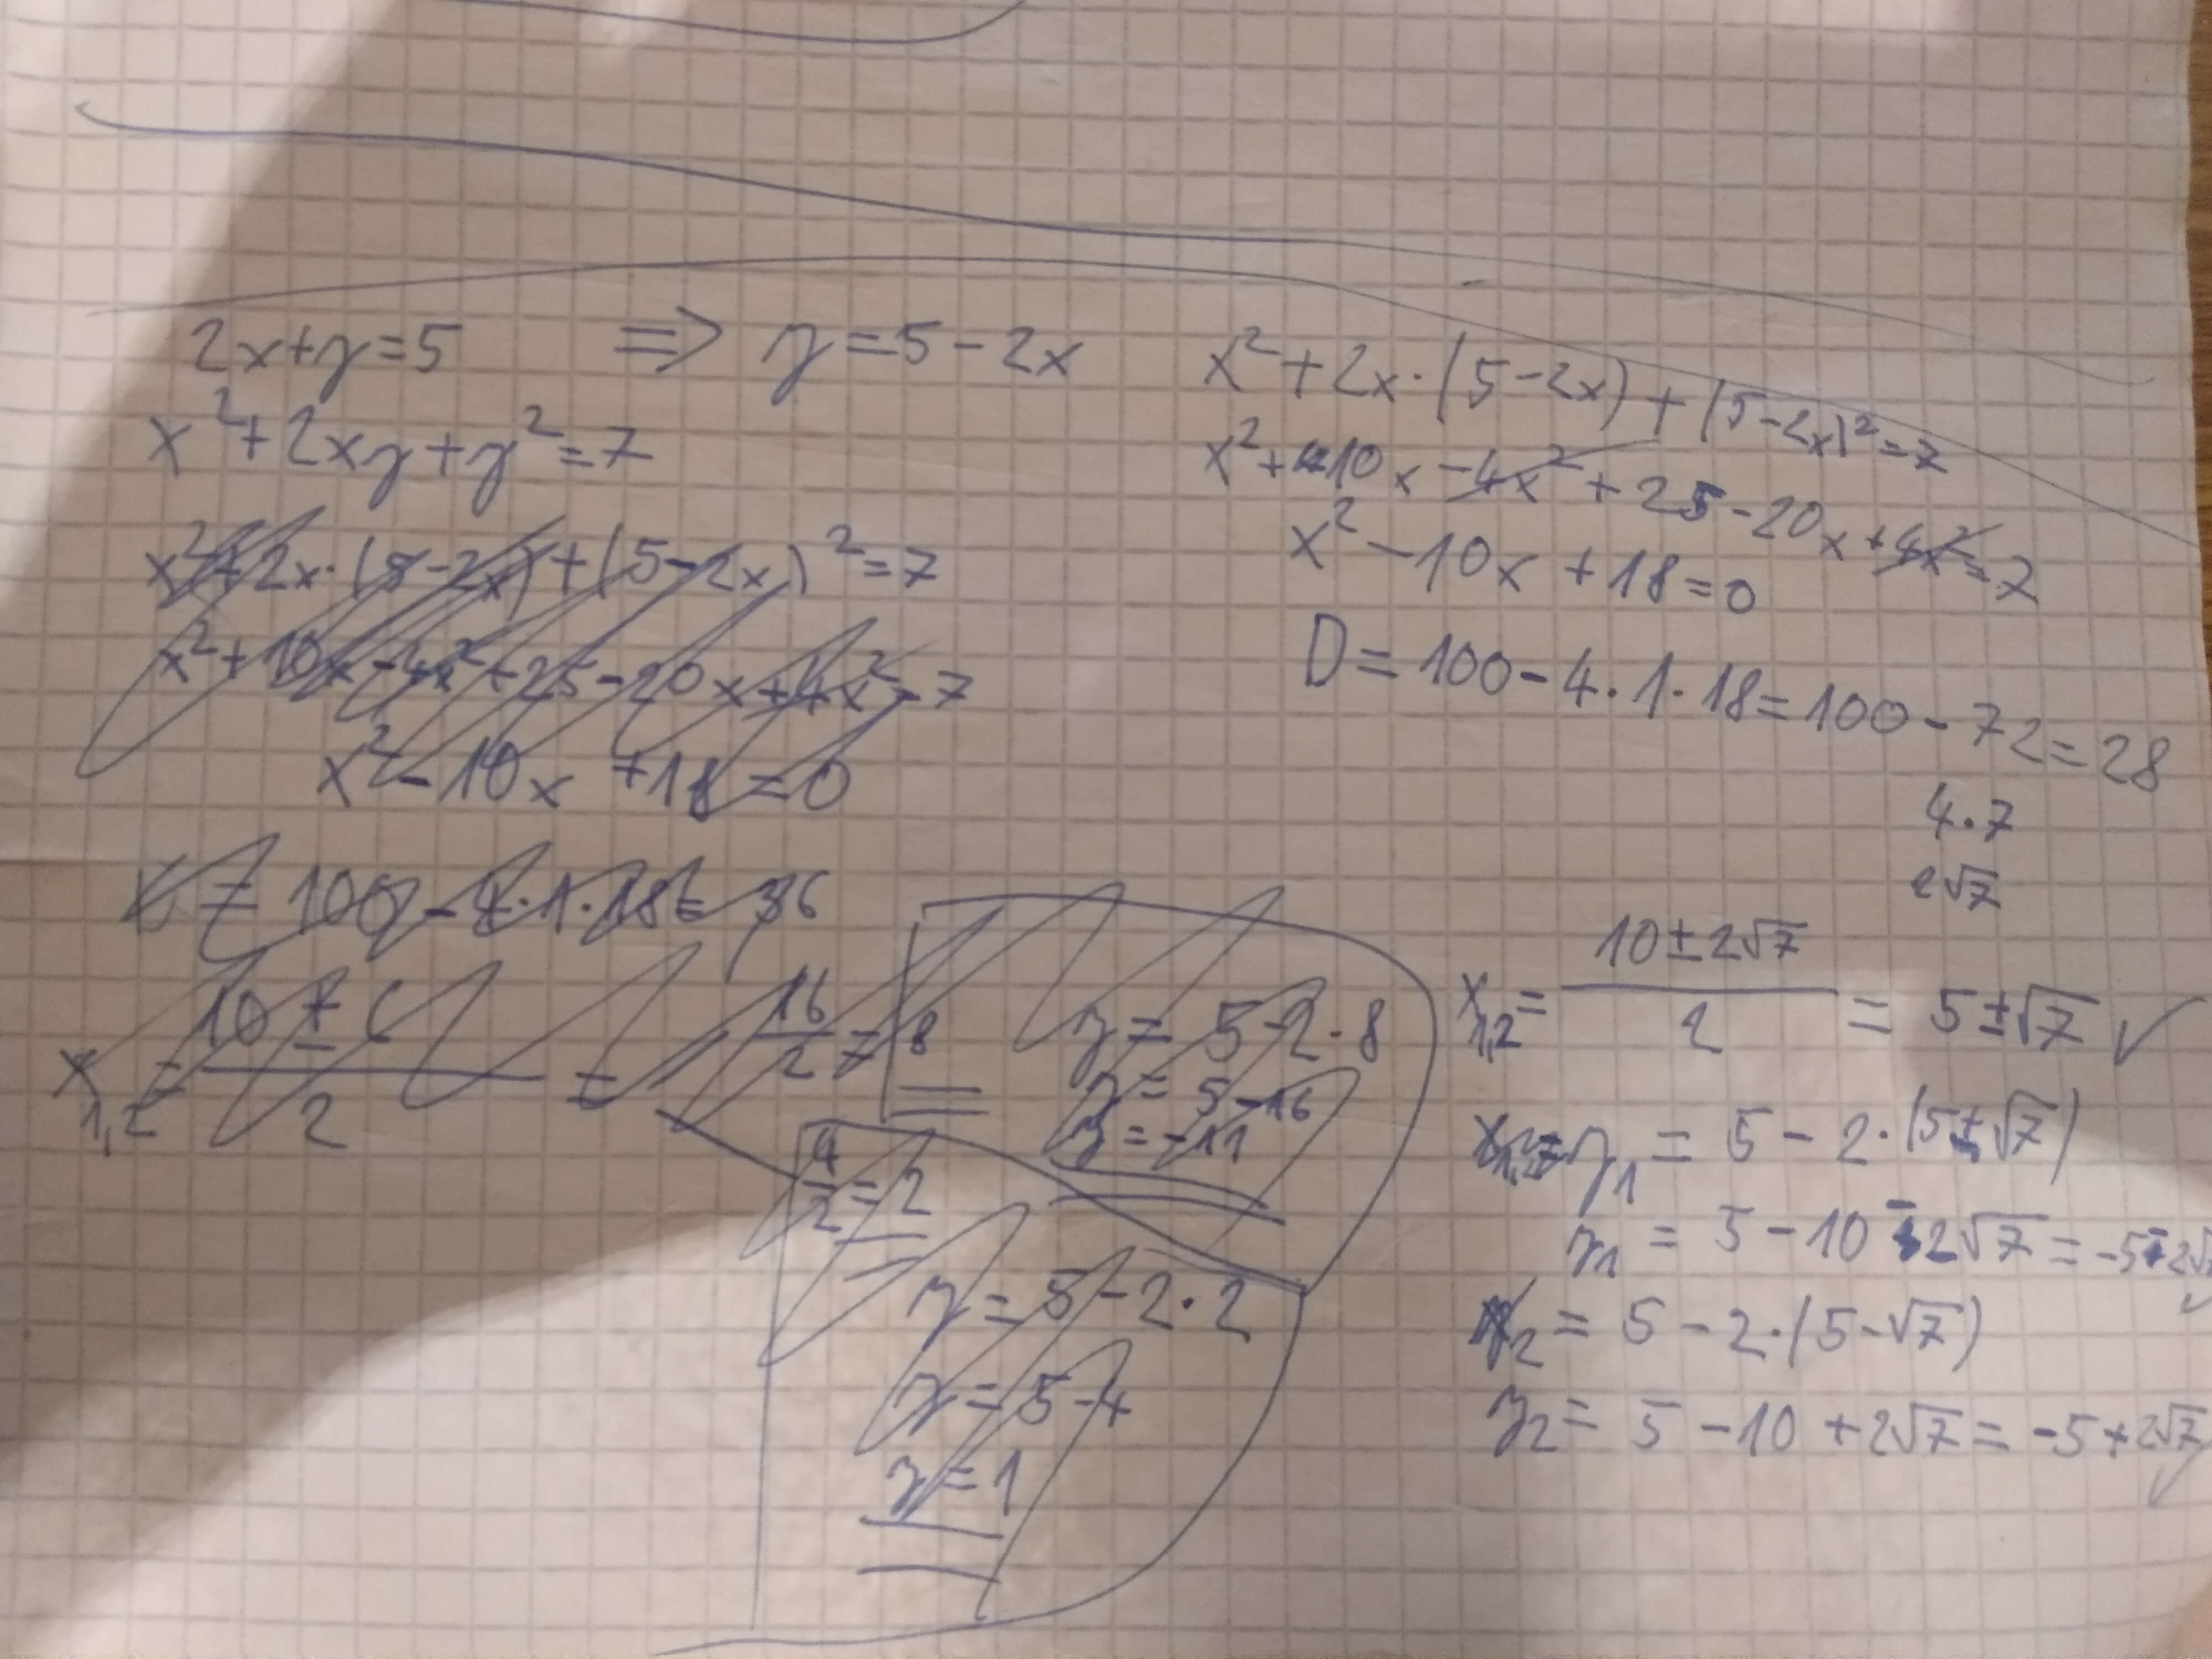 2x+y=5 => y=5-2x
x²+2xy+y²=7
x²+2x·(5-2x)+(5-2x)²=7
x²+10x-4x²+25-20x+4x²=7
x²-10x+18=0
= 100-4·1·18= 36
x₁,₂= (10±6)/2 = 16/2 = 8
y= 5-2·8
y= 5-16
y=-11
4/2=2
y=5-2·2
y=5-4
y=1
x²+2x·(5-2x)+(5-2x)²=7
x²+10x-4x²+25-20x+4x²=7
x²-10x+18=0
D=100-4·1·18=100-72=28
4·7
2√7
x₁,₂= (10±2√7)/2 = 5±√7 ✓
y₁= 5-2·(5+√7)
y₁= 5-10-2√7=-5-2√7
y₂= 5-2·(5-√7)
y₂= 5-10+2√7=-5+2√7 ✓